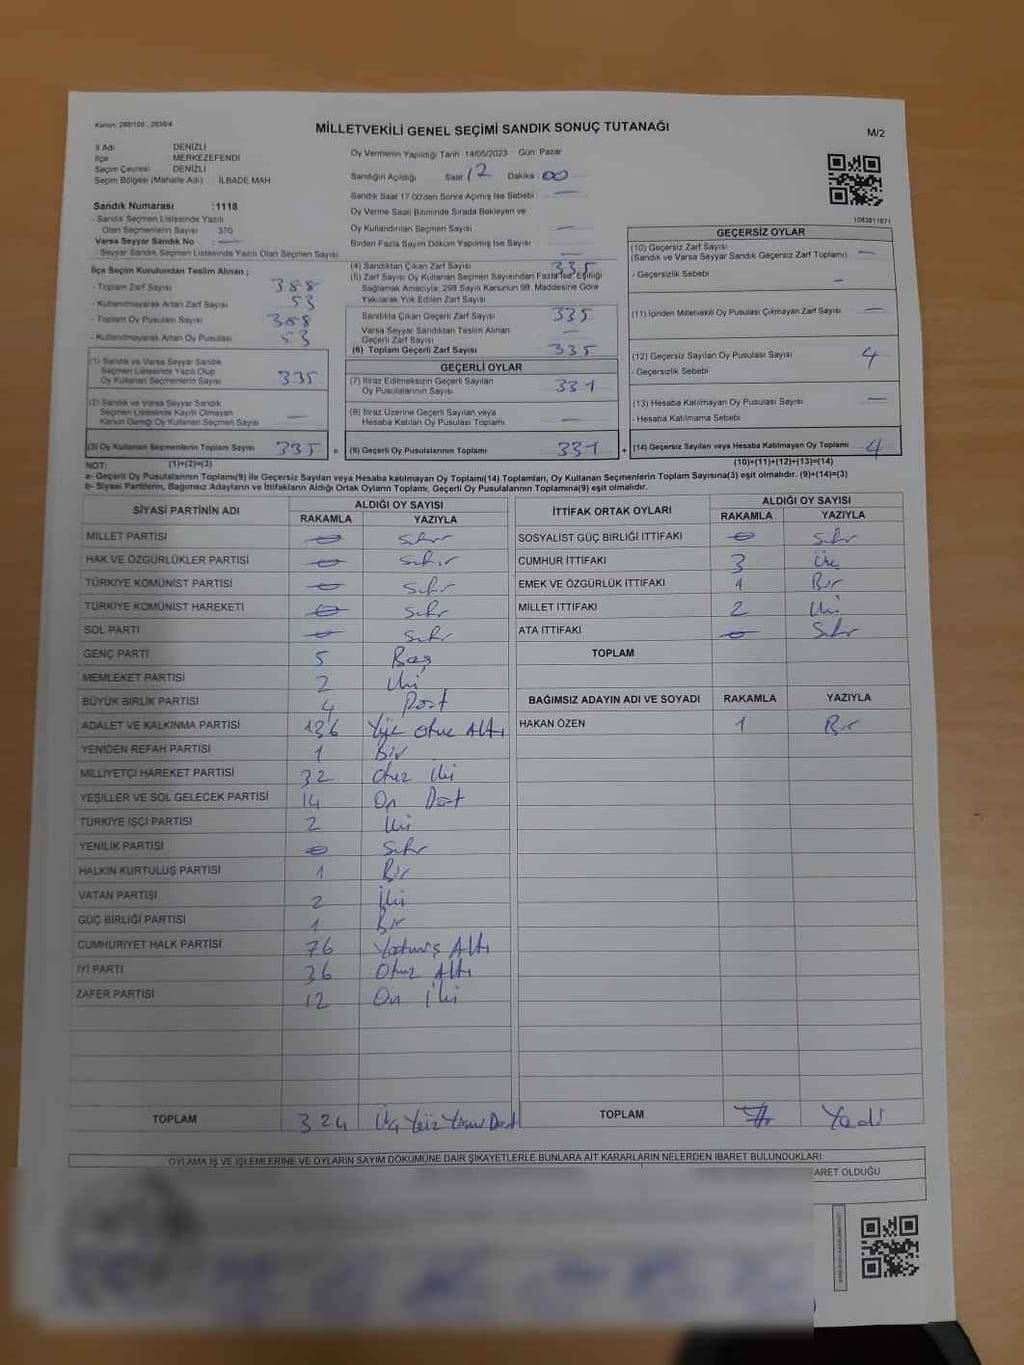 Kanun: 298/105 , 2839/4
MİLLETVEKİLİ GENEL SEÇİMİ SANDIK SONUÇ TUTANAĞI
M/2
İl Adı DENİZLİ
İlçe MERKEZEFENDİ
Seçim Çevresi DENİZLİ
Seçim Bölgesi (Mahalle Adı) İLBADE MAH
Sandık Numarası :1118
- Sandık Seçmen Listesinde Yazılı
Olan Seçmenlerin Sayısı 370
Varsa Seyyar Sandık No : —
- Seyyar Sandık Seçmen Listesinde Yazılı Olan Seçmen Sayısı
Oy Vermenin Yapıldığı Tarih 14/05/2023 Gün Pazar
Sandığın Açıldığı Saat 12 Dakika 00
Sandık Saat 17 00'den Sonra Açılmış İse Sebebi —
Oy Verme Saati Bitiminde Sırada Bekleyen ve
Oy Kullandırılan Seçmen Sayısı —
Birden Fazla Sayım Döküm Yapılmış İse Sayısı —
1083811671
İlçe Seçim Kurulundan Teslim Alınan ;
- Toplam Zarf Sayısı 388
- Kullanılmayarak Artan Zarf Sayısı 53
- Toplam Oy Pusulası Sayısı 388
- Kullanılmayarak Artan Oy Pusulası 53
(1) Sandık ve Varsa Seyyar Sandık
Seçmen Listesinde Yazılı Olup
Oy Kullanan Seçmenlerin Sayısı 335
(2) Sandık ve Varsa Seyyar Sandık
Seçmen Listesinde Kayıtlı Olmayan
Kanun Gereği Oy Kullanan Seçmen Sayısı —
(3) Oy Kullanan Seçmenlerin Toplam Sayısı 335 =
(4) Sandıktan Çıkan Zarf Sayısı 335
(5) Zarf Sayısı Oy Kullanan Seçmen Sayısından Fazla İse, Eşitliği
Sağlamak Amacıyla, 298 Sayılı Kanunun 98. Maddesine Göre
Yakılarak Yok Edilen Zarf Sayısı
Sandıkta Çıkan Geçerli Zarf Sayısı 335
Varsa Seyyar Sandıktan Teslim Alınan
Geçerli Zarf Sayısı —
(6) Toplam Geçerli Zarf Sayısı 335
GEÇERLİ OYLAR
(7) İtiraz Edilmeksizin Geçerli Sayılan
Oy Pusulalarının Sayısı 331
(8) İtiraz Üzerine Geçerli Sayılan veya
Hesaba Katılan Oy Pusulaları Toplamı —
(9) Geçerli Oy Pusulalarının Toplamı 331 +
GEÇERSİZ OYLAR
(10) Geçersiz Zarf Sayısı
(Sandık ve Varsa Seyyar Sandık Geçersiz Zarf Toplamı) —
- Geçersizlik Sebebi —
(11) İçinden Milletvekili Oy Pusulası Çıkmayan Zarf Sayısı —
(12) Geçersiz Sayılan Oy Pusulası Sayısı 4
- Geçersizlik Sebebi
(13) Hesaba Katılmayan Oy Pusulası Sayısı —
- Hesaba Katılmama Sebebi
(14) Geçersiz Sayılan veya Hesaba Katılmayan Oy Toplamı 4
NOT: (1)+(2)=(3)
(10)+(11)+(12)+(13)=(14)
a- Geçerli Oy Pusulalarının Toplamı(9) ile Geçersiz Sayılan veya Hesaba katılmayan Oy Toplamı(14) Toplamları, Oy Kullanan Seçmenlerin Toplam Sayısına(3) eşit olmalıdır. (9)+(14)=(3)
b- Siyasi Partilerin, Bağımsız Adayların ve İttifakların Aldığı Ortak Oyların Toplamı, Geçerli Oy Pusulalarının Toplamına(9) eşit olmalıdır.
SİYASİ PARTİNİN ADI ALDIĞI OY SAYISI
RAKAMLA YAZIYLA
MİLLET PARTİSİ 0 Sıfır
HAK VE ÖZGÜRLÜKLER PARTİSİ 0 Sıfır
TÜRKİYE KOMÜNİST PARTİSİ 0 Sıfır
TÜRKİYE KOMÜNİST HAREKETİ 0 Sıfır
SOL PARTİ 0 Sıfır
GENÇ PARTİ 5 Beş
MEMLEKET PARTİSİ 2 İki
BÜYÜK BİRLİK PARTİSİ 4 Dört
ADALET VE KALKINMA PARTİSİ 136 Yüz Otuz Altı
YENİDEN REFAH PARTİSİ 1 Bir
MİLLİYETÇİ HAREKET PARTİSİ 32 Otuz İki
YEŞİLLER VE SOL GELECEK PARTİSİ 14 On Dört
TÜRKİYE İŞÇİ PARTİSİ 2 İki
YENİLİK PARTİSİ 0 Sıfır
HALKIN KURTULUŞ PARTİSİ 1 Bir
VATAN PARTİSİ 2 İki
GÜÇ BİRLİĞİ PARTİSİ 1 Bir
CUMHURİYET HALK PARTİSİ 76 Yetmiş Altı
İYİ PARTİ 36 Otuz Altı
ZAFER PARTİSİ 12 On İki
TOPLAM 324 Üç Yüz Yirmi Dört
İTTİFAK ORTAK OYLARI ALDIĞI OY SAYISI
RAKAMLA YAZIYLA
SOSYALİST GÜÇ BİRLİĞİ İTTİFAKI 0 Sıfır
CUMHUR İTTİFAKI 3 Üç
EMEK VE ÖZGÜRLÜK İTTİFAKI 1 Bir
MİLLET İTTİFAKI 2 İki
ATA İTTİFAKI 0 Sıfır
TOPLAM
BAĞIMSIZ ADAYIN ADI VE SOYADI RAKAMLA YAZIYLA
HAKAN ÖZEN 1 Bir
TOPLAM 7 Yedi
OYLAMA İŞ VE İŞLEMLERİNE VE OYLARIN SAYIM DÖKÜMÜNE DAİR ŞİKAYETLERLE BUNLARA AİT KARARLARIN NELERDEN İBARET BULUNDUKLARI
ARET OLDUĞU